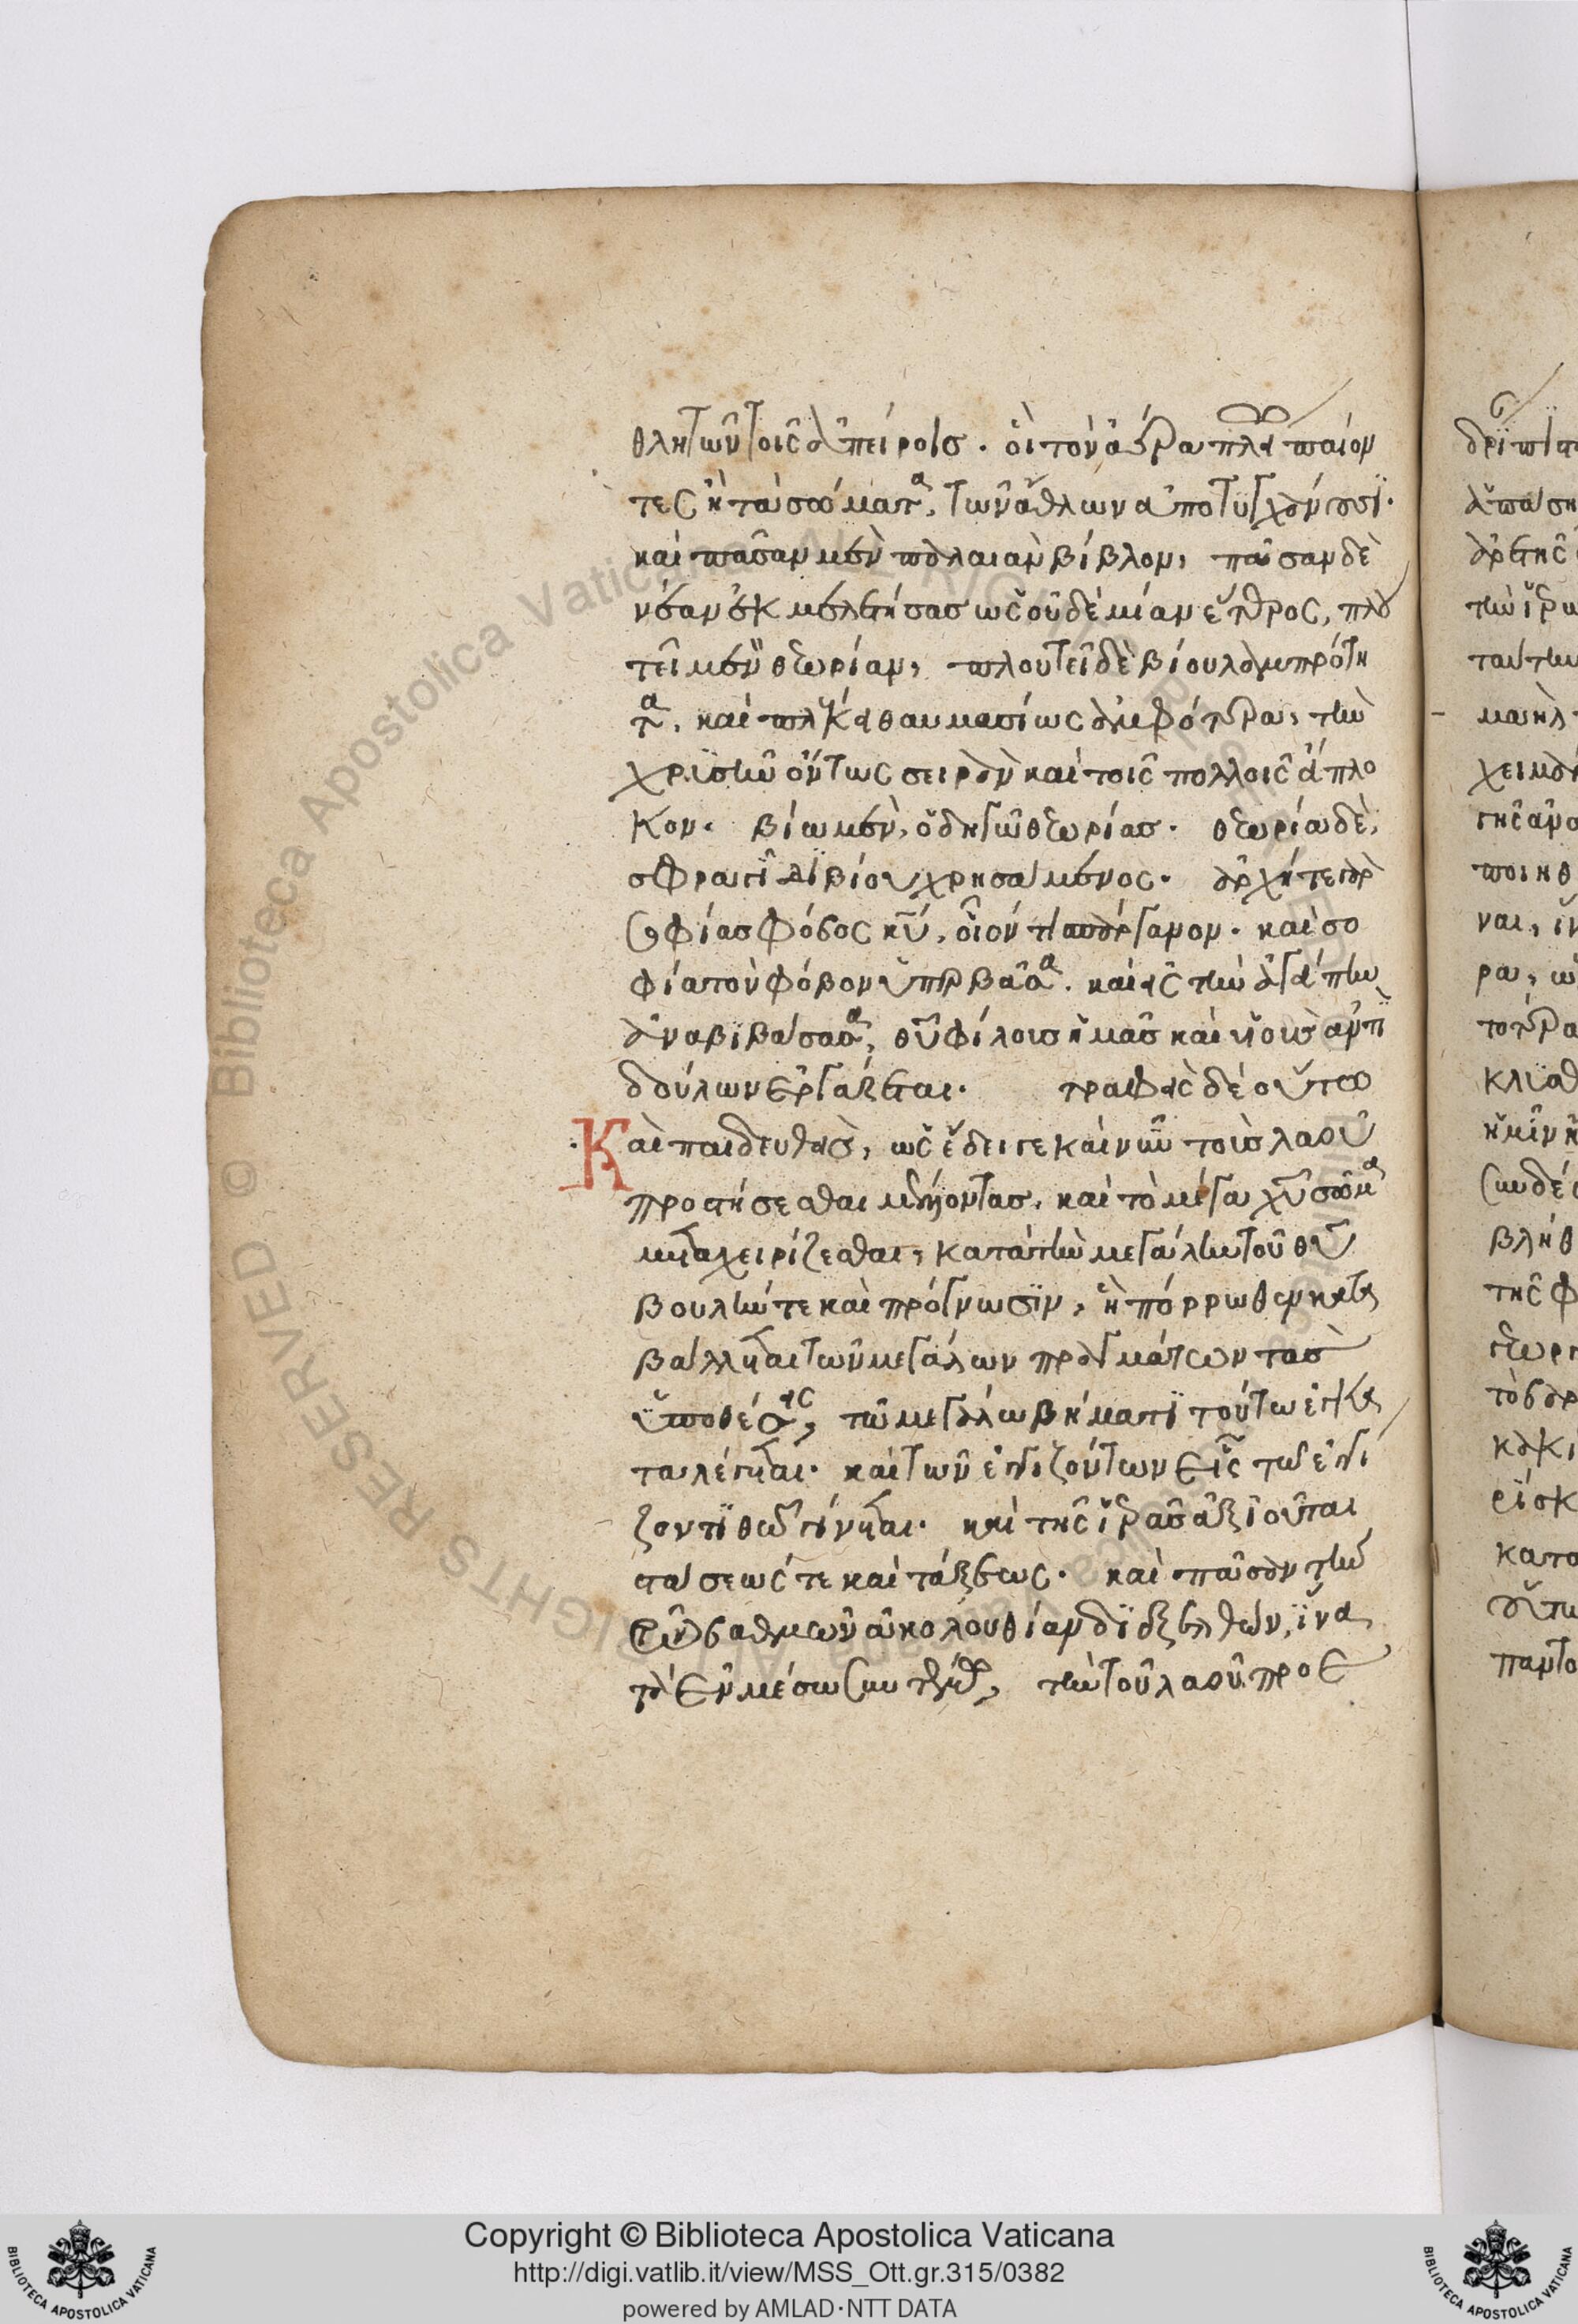 θλητῶν τοῖς ἀπείροις. οἳ τὸν ἀέρα πλεῖ παίον
τες ἢ τὰ σώματα, τῶν ἄθλων ἀποτυγχάνουσι.
καὶ πᾶσαν μὲν παλαιὰν βίβλον, πᾶσαν δὲ
νέαν ἐκμελετήσας ὡς οὐδὲ μίαν ἕτερος, πλου
τεῖ μὲν θεωρίαν, πλουτεῖ δὲ βίου λαμπρότη
τα, καὶ πλέκει θαυμασίως ἀμφότερα, τὴν
χρυσῆν ὄντως σειρὰν καὶ τοῖς πολλοῖς ἄπλο
κον. βίω μὲν, ὁδηγῶ θεωρίας. θεωρία δὲ,
σφραγῖδι βίου χρησάμενος. ἀρχή τε γὰρ
σοφίας φόβος κυ, οἷόν τι σπάργανον. καὶ σο
φία τὸν φόβον ὑπερβᾶσα. καὶ εἰς τὴν ἀγάπην
ἀναβιβάσασα, θυ φίλους ἡμᾶς καὶ υἱοὺς ἀντὶ
δούλων ἐργάζεται. τραφεὶς δὲ οὕτω
Καὶ παιδευθεὶς, ὡς ἔδει γε καὶ νῦν τοὺς λαοῦ
προστήσεσθαι μέλλοντας, καὶ τὸ μέγα χυ σῶμα
μεταχειρίζεσθαι, κατὰ τὴν μεγάλην τοῦ θυ
βουλήν τε καὶ πρόγνωσιν, ἢ πόρρωθεν κατα
βάλλεται τῶν μεγάλων πραγμάτων τὰς
ὑποθέσεις, τῶ μεγάλω βήματι τούτω ἐγκα
ταλέγεται. καὶ τῶν ἐγγιζόντων εἷς τῶ ἐγγί
ζοντι θεῶ γίνεται. καὶ τῆς ἱερᾶς ἀξιοῦται
στάσεώς τε καὶ τάξεως. καὶ πᾶσαν τὴν
τῶν βαθμῶν ἀκολουθίαν διεξελθὼν, ἵνα
τὰ ἐν μέσω συντέμω, τὴν τοῦ λαοῦ προε
Copyright © Biblioteca Apostolica Vaticana
http://digi.vatlib.it/view/MSS_Ott.gr.315/0382
powered by AMLAD·NTT DATA